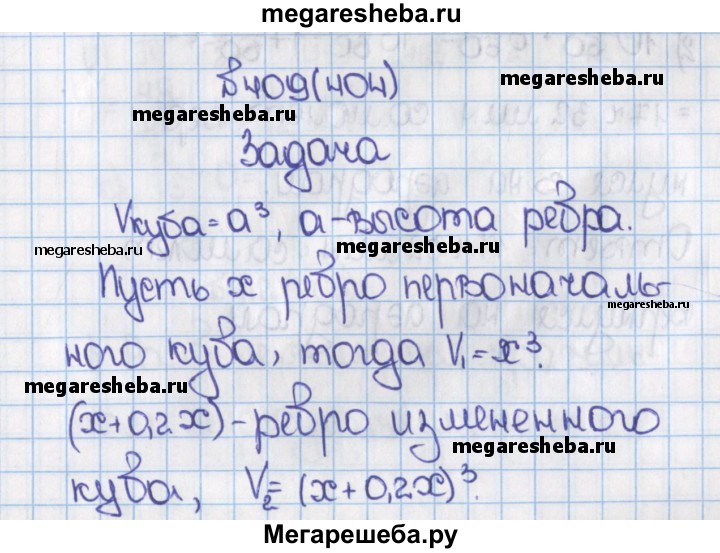 megaresheba.ru
§409(404)
megaresheba.ru
megaresheba.ru
Задача
Vкуба=a³, a-высота ребра.
megaresheba.ru
megaresheba.ru
Пусть x ребро первоначаль-
megaresheba.ru
ного куба, тогда V₁=x³.
megaresheba.ru
(x+0,2x)-ребро измененного
megaresheba.ru
куба, V₂=(x+0,2x)³.
Мегарешеба.ру